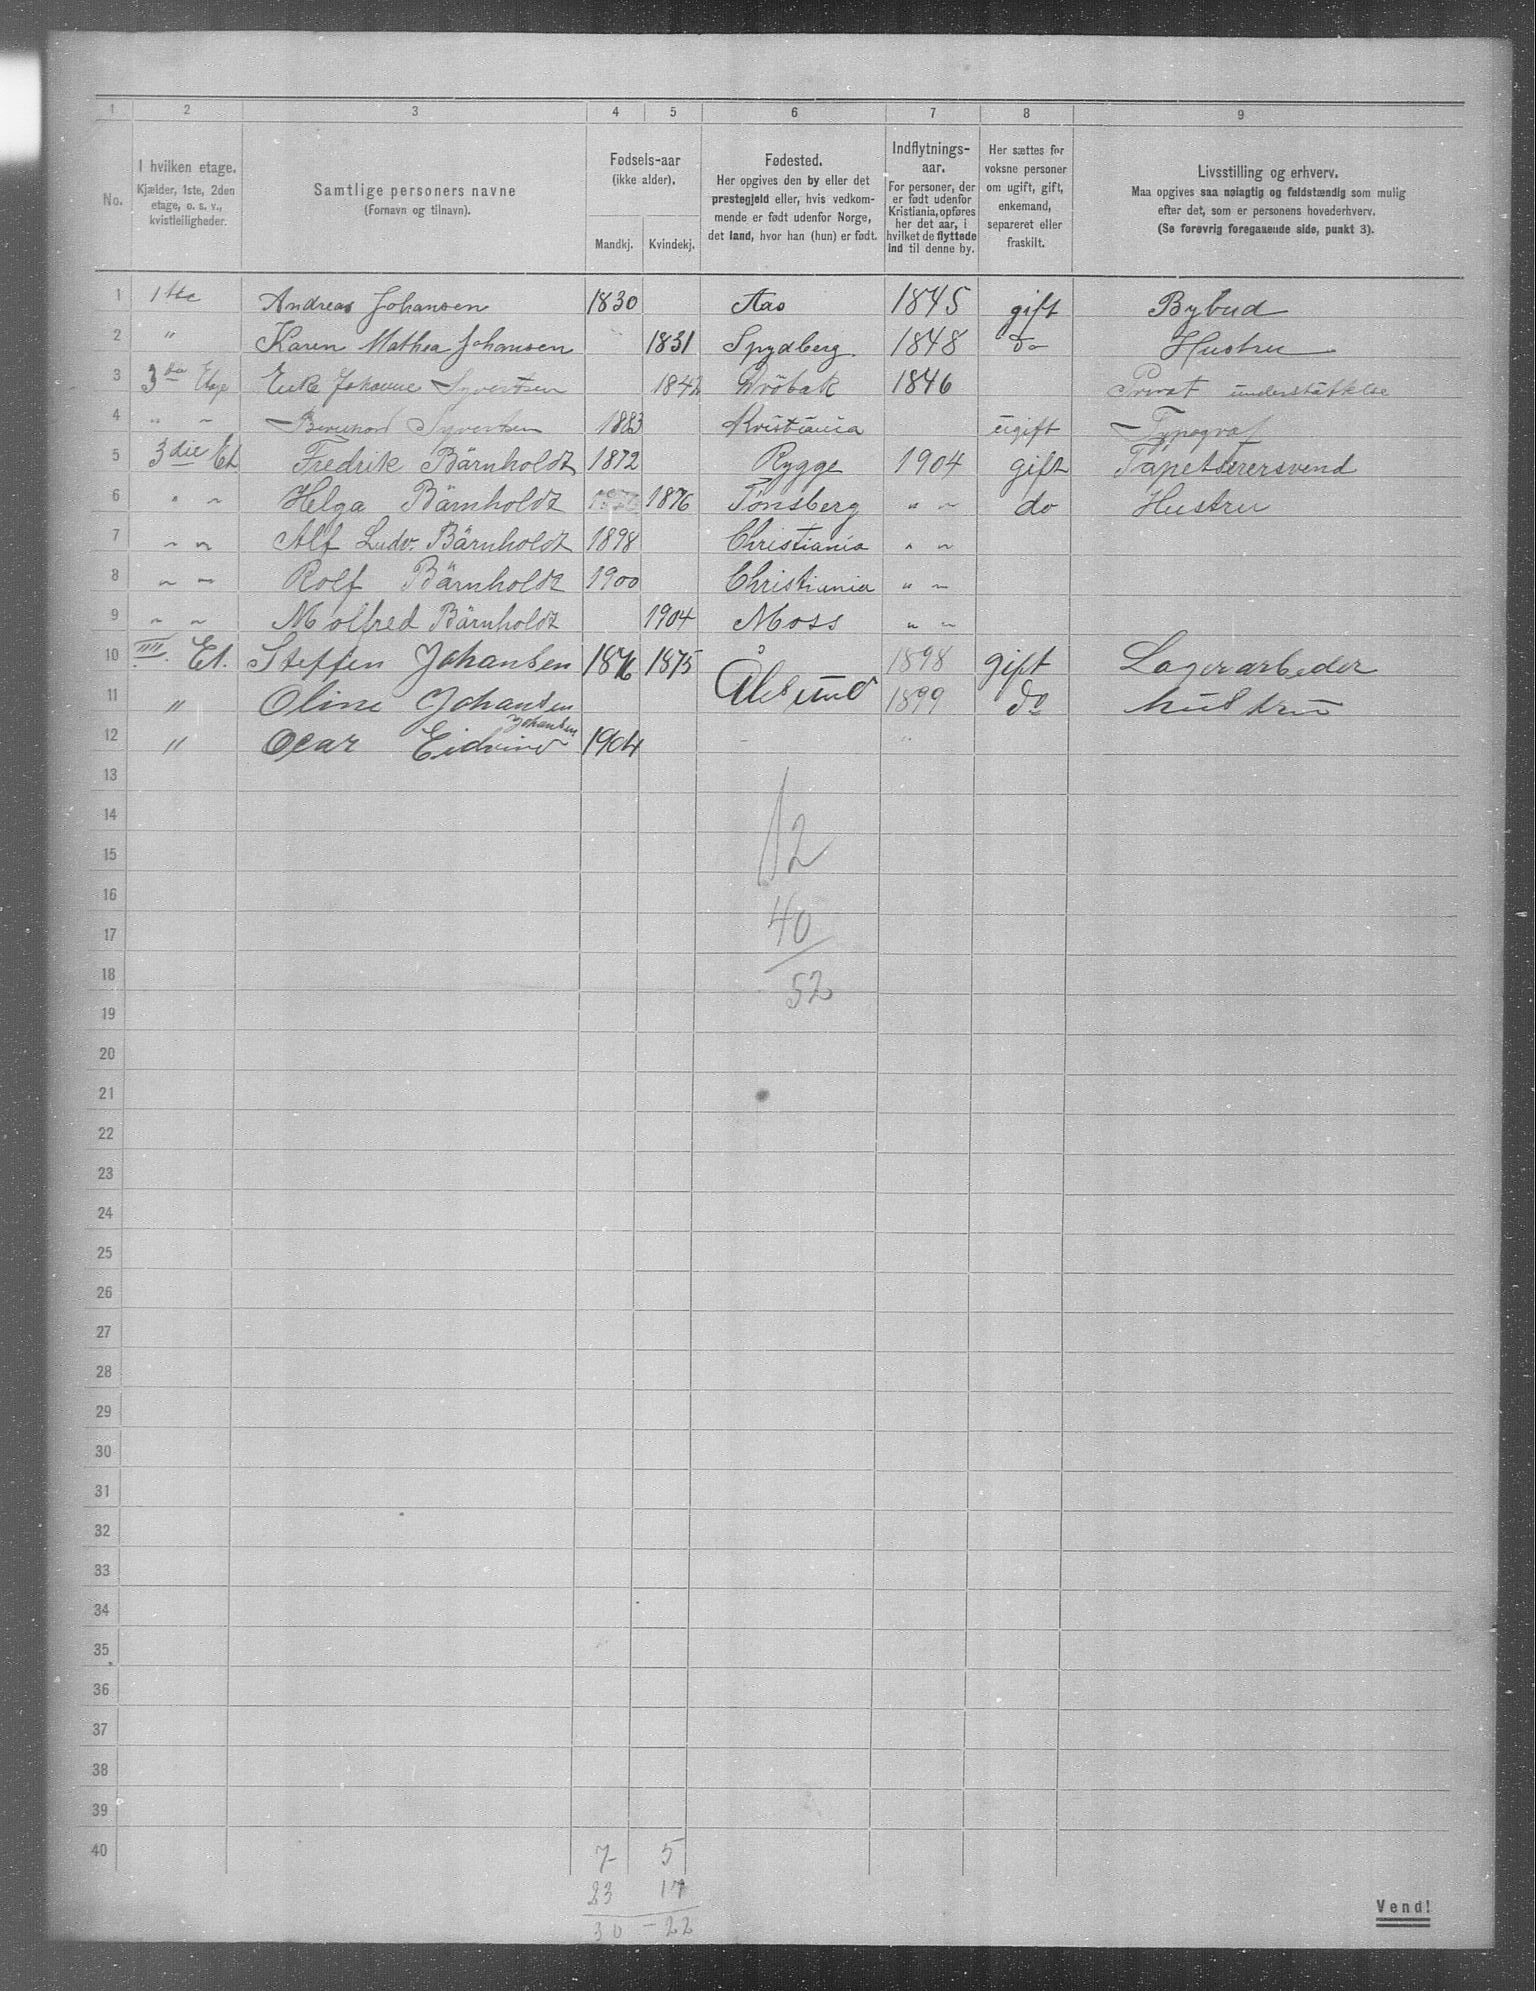 1 2 3 4 5 6 7 8 9
No.
I hvilken etage.
Kjælder, 1ste, 2den
etage, o. s. v.,
kvistleiligheder.
Samtlige personers navne
(Fornavn og tilnavn).
Fødsels-aar
(ikke alder).
Mandkj. Kvindekj.
Fødested.
Her opgives den by eller det
prestegjeld eller, hvis vedkom-
mende er født udenfor Norge,
det land, hvor han (hun) er født.
Indflytnings-
aar.
For personer, der
er født udenfor
Kristiania, opføres
her det aar, i
hvilket de flyttede
ind til denne by.
Her sættes for
voksne personer
om ugift, gift,
enkemand,
separeret eller
fraskilt.
Livsstilling og erhverv.
Maa opgives saa nøiagtig og fuldstændig som mulig
efter det, som er personens hovederhverv.
(Se forøvrig foregaaende side, punkt 3).
1 1ste Andreas Johansen 1830 Aas 1845 gift Bybud
2 " Karen Mathea Johansen 1831 Spydberg. 1848 Do Hustru
3 3die Etage Enke Johanne Syvertsen 1842 Dröbak 1846 Privat understøttelse
4 " " Syvertsen 1883 Kristiania ugift Typograf
5 3die Et. Fredrik Bärnholdt 1872 Rygge 1904 gift Tapetserersvend
6 " " Helga Bärnholdt 1876 1876 Tønsberg " " do Hustru
7 " " Alf Ludv. Bärnholdt 1898 Christiania " "
8 " " Rolf Bärnholdt 1900 Christiania " "
9 " " Molfred Bärnholdt 1904 Moss " "
10 IIII Et. Steffen Johansen 1876 1875 Ålesund 1898 gift Lagerarbeder
11 " Oline Johansen 1899 Do Hustru
Johansen
12 " Ocar Eidvind 1904 "
13
14
15
12
16
17
40
18
52
19
20
21
22
23
24
25
26
27
28
29
30
31
32
33
34
35
36
37
38
39
40 7 5
23 17
30 - 22
Vend!